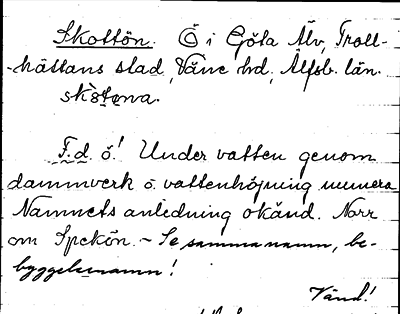 Skottön. Ö i Göta Älv, Troll-
-hättans stad, Väne hd, Älfsb. län.
F.d. ö! Under vatten genom
dammverk o. vattenhöjning numera
Namnets anledning okänd. Norr
om Spekön. - Se samma namn, be-
byggelsenamn!
Vänd!